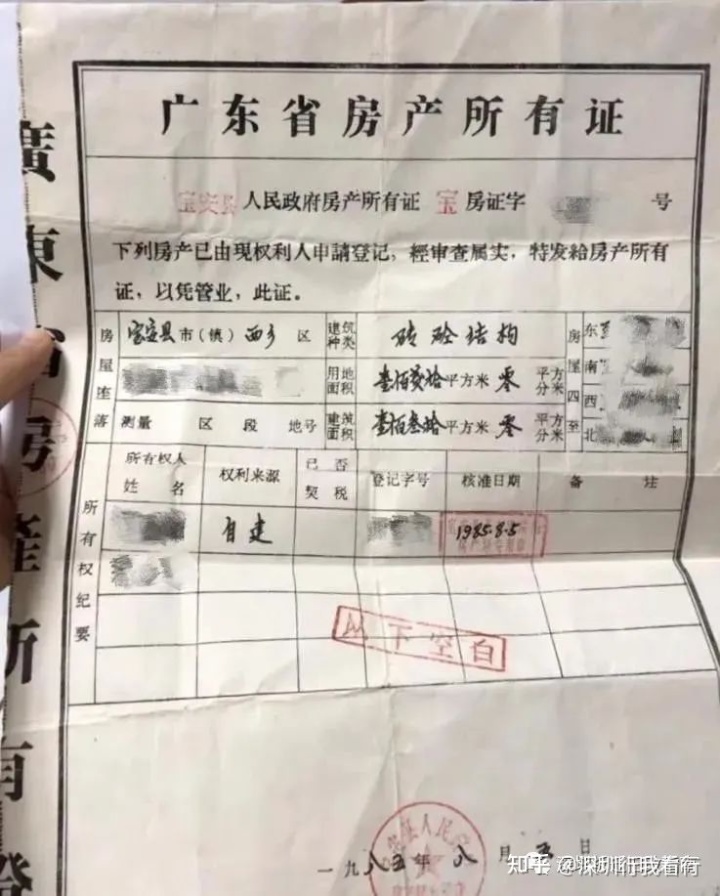 广东省房产所有证
宝安县 人民政府房产所有证 宝 房证字 号
下列房产已由现权利人申請登记，經审查属实，特发給房产所有
证，以凭管业，此证。
房屋座落 宝安县市(镇)西乡 区 建筑种类 砖砼结构 房屋四至 东
用地面积 壹佰贰拾平方米零 平方分米 南
西
测量 区 段 地号 建筑面积 壹佰叁拾平方米零 平方分米 北
所有权纪要 所有权人姓名 权利来源 已否契税 登记字号 核准日期 备注
自建 1985.8.5
以下空白
一九八五年八月五日
廣東省房産所有證
知乎 @深圳行我看行